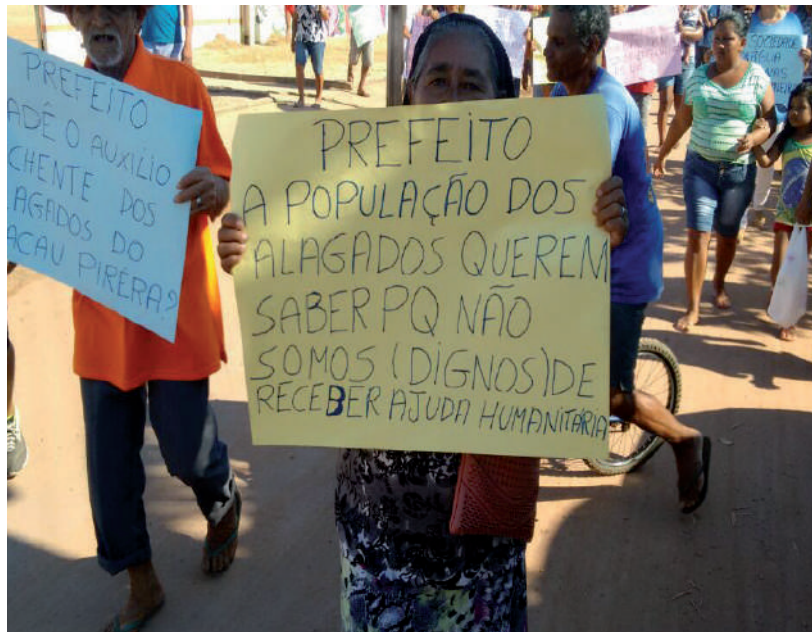 PREFEITO
ADÉ O AUXILIO
CHENTE DOS
LAGADOS DO
ACAU PIRÉRA?
PREFEITO
A POPULAÇÃO DOS
ALAGADOS QUEREM
SABER PQ NÃO
SOMOS (DIGNOS) DE
RECEBER AJUDA HUMANITÁRIA
SOCIEDADE